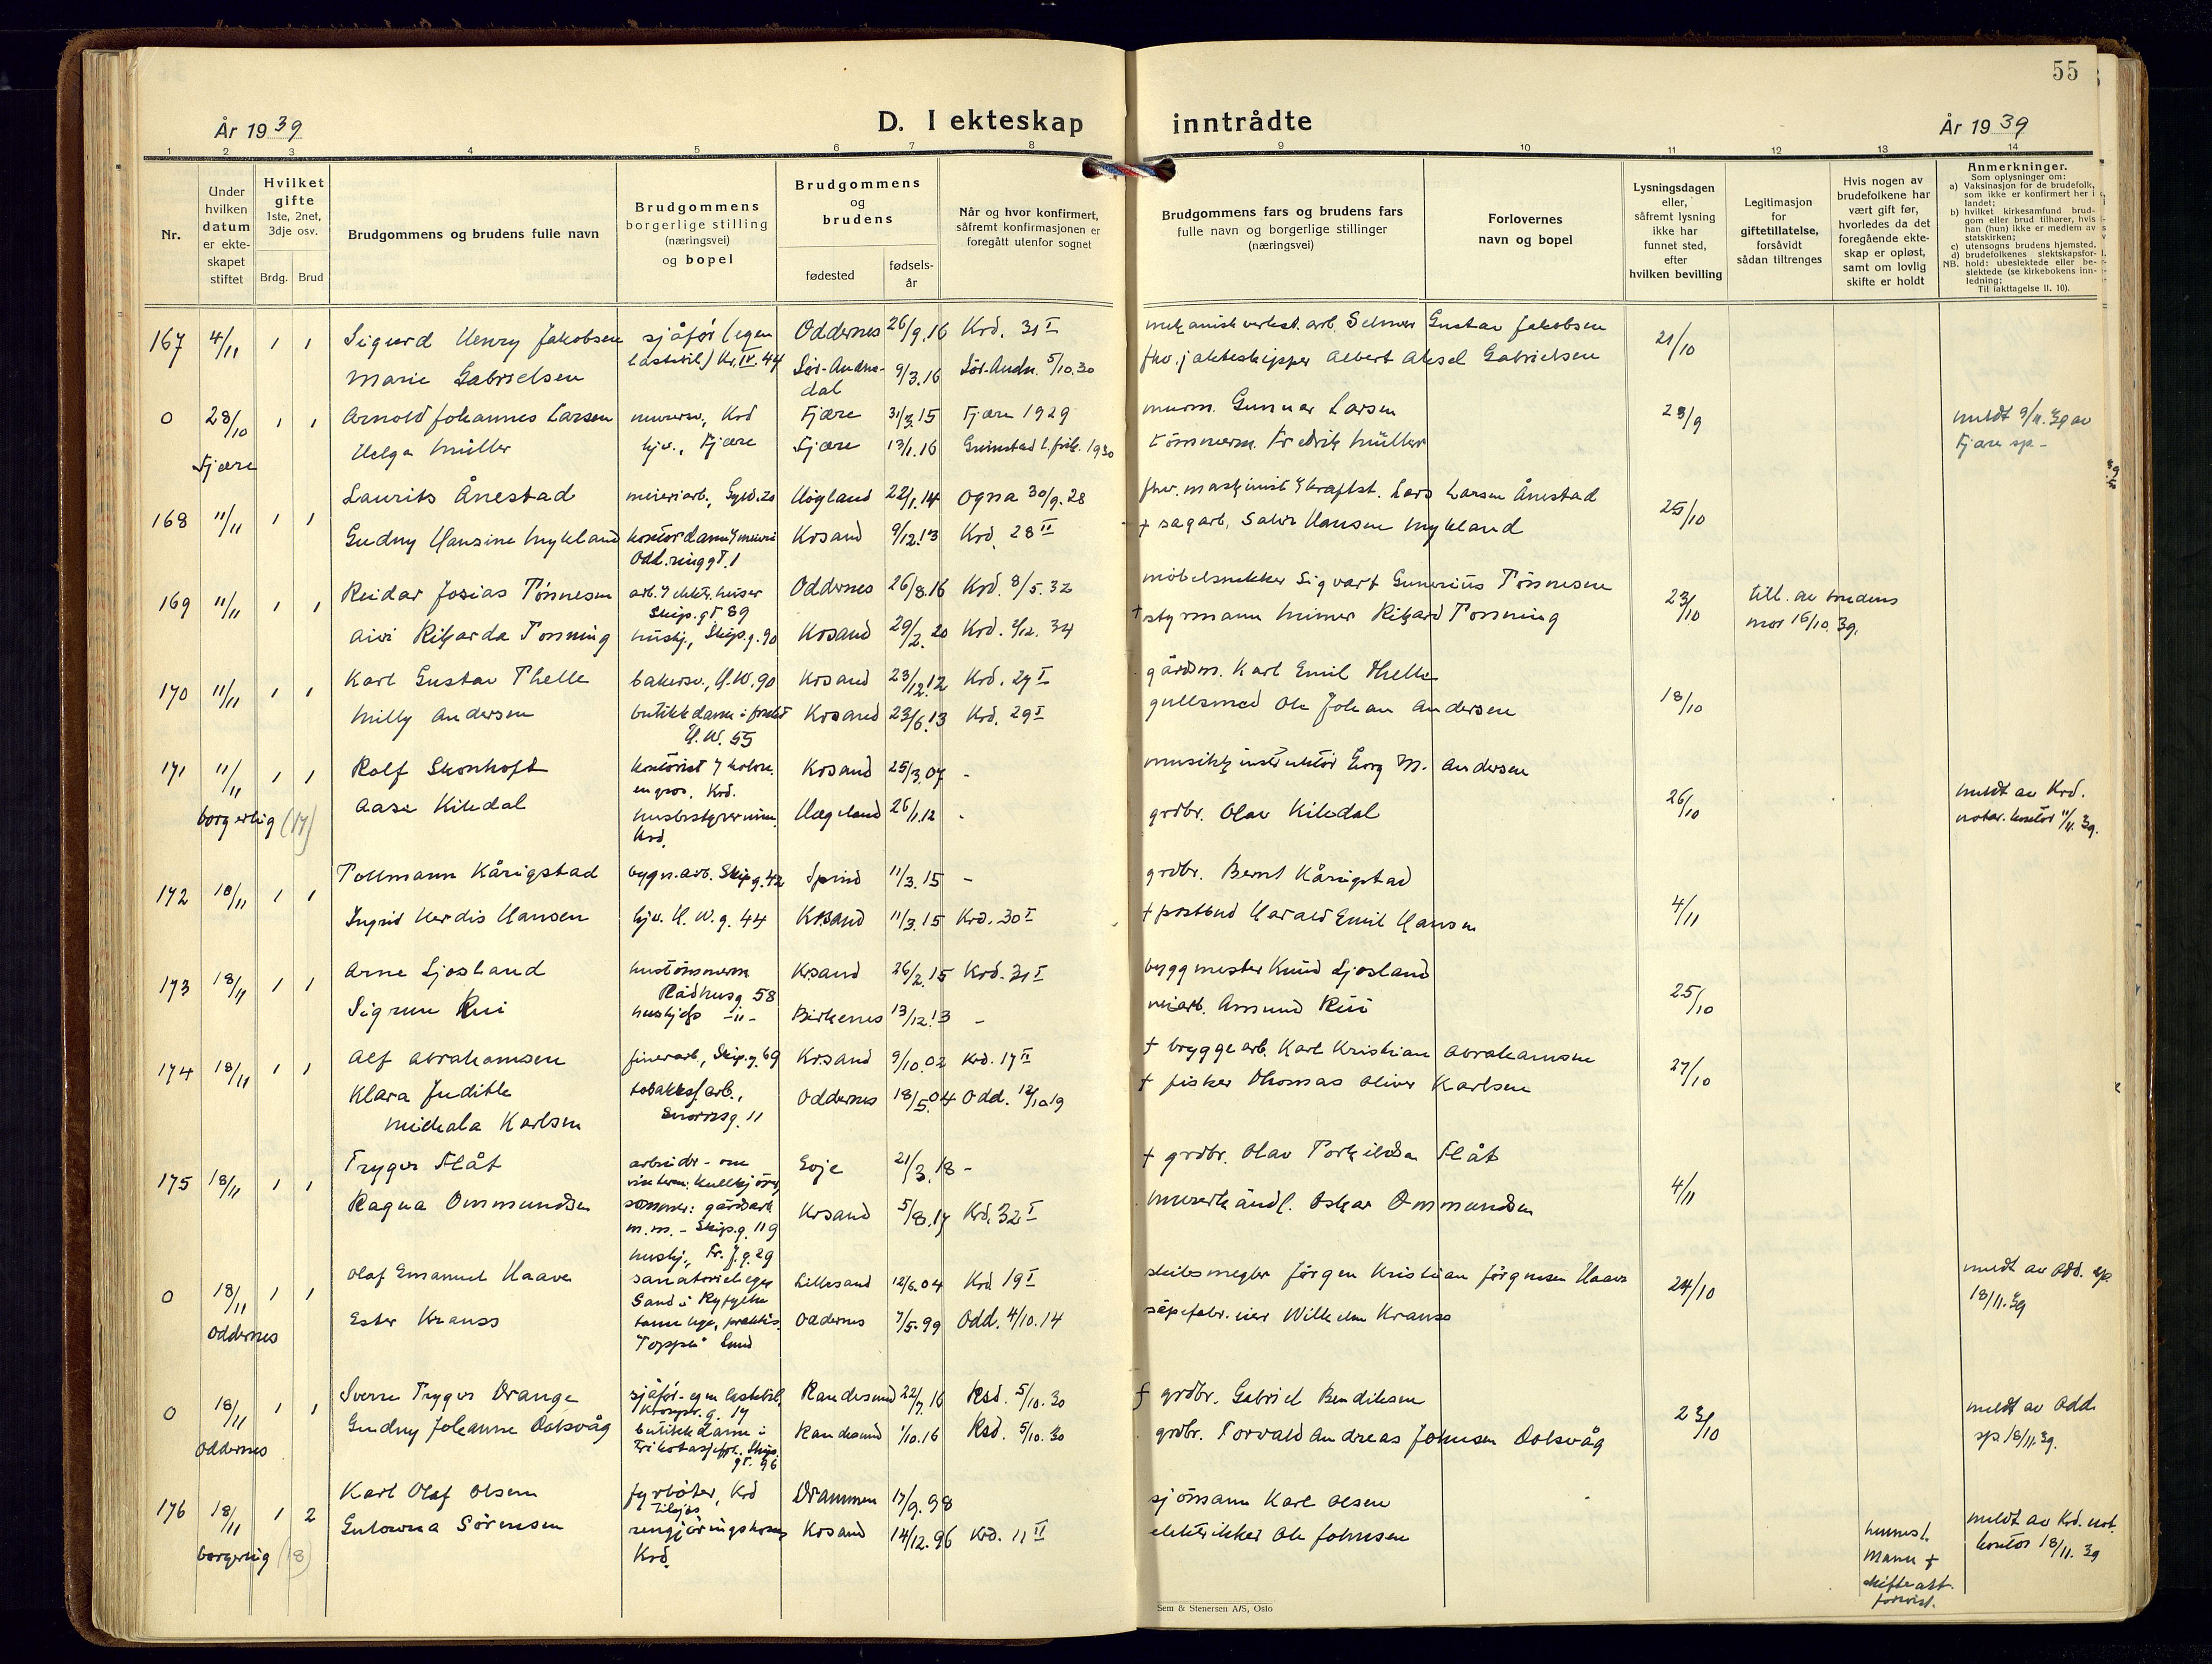 55
År 1939
D. I ekteskap inntrådte
År 1939
1 2 3 4 5 6 7 8 9 10 11 12 13 14
Nr.
Under hvilken datum er ekte-skapet stiftet
Hvilket gifte
1ste, 2net, 3dje osv.
Brdg. Brud
Brudgommens og brudens fulle navn
Brudgommens borgerlige stilling (næringsvei) og bopel
Brudgommens og brudens
fødested
fødsels-år
Når og hvor konfirmert, såfremt konfirmasjonen er foregått utenfor sognet
Brudgommens fars og brudens fars fulle navn og borgerlige stillinger (næringsvei)
Forlovernes navn og bopel
Lysningsdagen eller, såfremt lysning ikke har funnet sted, efter hvilken bevilling
Legitimasjon for giftetillatelse, forsåvidt sådan tiltrenges
Hvis nogen av brudefolkene har vært gift før, hvorledes da det foregående ekte-skap er opløst, samt om lovlig skifte er holdt
Anmerkninger.
Som oplysninger om:
a) Vaksinasjon for de brudefolk, som ikke er konfirmert her i landet;
b) hvilket kirkesamfund brud-gom eller brud tilhører, hvis han (hun) ikke er medlem av statskirken;
c) utensogns brudens hjemsted.
d) brudefolkenes slektskapsfor-hold: ubeslektede eller be-slektede (se kirkebokens inn-ledning;
NB. Til iakttagelse II. 10).
167 4/11 1 1 Sigurd Henry Jakobsen sjåfør (egen Oddernes 26/9.16 Krd. 31 I mekanisk verkst. arb. Selmer Gustav Jakobsen 21/10
Marie Gabrielsen lastebil) Kr. IV. 44 Sør-Audne-dal 9/3.16 Sør-Audn. 5/10.30 fhv. jakteskipper Albert Aksel Gabrielsen
0 28/10 1 1 Arnold Johannes Larsen murersv., Krd Fjære 31/3.15 Fjære 1929 murm. Gunnar Larsen 23/9 meldt 9/11.39 av
Fjære Helga Müller hjv., Fjære Fjære 13/1.16 Grimstad l. frik. 1930 tømmerm. Fredrik Müller Fjære sp.
168 11/11 1 1 Laurits Ånestad meieriarb., Gyld. 20 Høgland 22/1.14 Ogna 30/9.28 fhv. maskinist Lars Larsen Ånestad 25/10
Gudny Hansine Mykland kontordame Krsand 9/12.13 Krd. 28 II + sagarb. Hansen Mykland
169 11/11 1 1 Reidar Josias Tønnesen Skip.gt 89 Oddernes 26/8.16 Krd. 8/5.32 møbelsnekker Sigvart Gunerius Tønnesen 23/10 till. av brudens
Aivi Rikarda Tønning hushj., Skip.g. 90 Krsand 29/2.20 Krd. 34 + styrmann Rikard Tønning mor 16/10.39.
170 11/11 1 1 Karl Gustav Thelle bakersv., H.W. 90 Krsand 23/12.12 Krd. 27 I gårdsm. Karl Emil Thelle 18/10
Milly Andersen butikkdame H.W. 55 Krsand 23/6.13 Krd. 29 I gullsmed Ole Johan Andersen
171 11/11 1 1 Rolf Skonhoft kontorist engros. Krd. Krsand 25/3.07 - musikkinstruktør Georg M. Andersen 26/10 meldt av Krd.
borgerlig (17) Aase Kiledal Krd. Hægeland 26/1.12 - grdbr. Olav Kiledal notar. kontor 11/11.39.
172 18/11 1 1 Tollmann Kåringstad bygn.arb. Skip.g. 42 Spind 11/3.15 - grdbr. Bernt Kåringstad 4/11
Ingrid Herdis Hansen hjv. H.W.g. 44 Krsand 11/3.15 Krd. 30 I + postbud Harald Emil Hansen
173 18/11 1 1 Arne Ljosland hustømmerm Rådhusg. 58 Krsand 26/2.15 Krd. 31 I byggmester Knud Ljosland 25/10
Sigrun Rui -"- Birkenes 13/12.13 - Amund Rui
174 18/11 1 1 Alf Abrahamsen finerarb., Skip.g. 69 Krsand 9/10.02 Krd. 17 II + bryggearb. Karl Kristian Abrahamsen 27/10
Klara Judithe Mickala Karlsen tobakksfarb., Snorresg. 11 Oddernes 18/5.04 Odd. 12/10 19 + fisker Thomas Oliver Karlsen
175 18/11 1 1 Trygve Flåt arbeider - om vinteren Evje 21/3.18 - + grdbr. Olav Torkildsen Flåt 4/11
Ragna Ommundsen sommer: gårdsarb m.m. - Skip.g. 119 hushj., Fr. J.g. 29 Krsand 5/8.17 Krd. 32 I Oskar Ommundsen
0 18/11 1 1 Olaf Emanuel Haave sanatorielege Sand i Ryfylke Lillesand 12/6.04 Krd 19 I skibsmegler Jørgen Kristian Jørgensen Haave 24/10 meldt av Odd. sp.
Oddernes Ester Krauss tannlege, praktis. "Toppen" Lund Oddernes 7/5.99 Odd. 4/10.14 såpefabr.eier Wilhelm Krauss 18/11.39
0 18/11 1 1 Sverre Trygve Drange sjåfør - egen lastebil, Randesund 22/7.16 Rsd. 5/10.30 + grdbr. Gabriel Bendiksen 23/10 meldt av Odd.
Oddernes Gudny Johanne Dolsvåg butikkdame i Trikotasjeforr. Skip. gt. 96 Randesund 1/10.16 Rsd. 5/10.30 grdbr. Torvald Andreas Johnsen Dolsvåg sp. 18/11.39.
176 18/11 1 2 Karl Olaf Olsen fyrbøter, Krd Drammen 17/9.98 sjømann Karl Olsen meldt av Krd. not.
borgerlig (18) Gulowna Sørensen rengjøringskone, Krd. Krsand 14/12.96 Krd. 11 II elektriker Ole Johnsen hennes 1. Mann + skifteatt. forevist. kontor 18/11.39
Sem & Stenersen A/S, Oslo